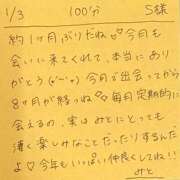 1/3 100分 S様
約1ヶ月ぶりだね♡今月も
会いに来てくれて、本当にあり
がとう(*^-^*) 今月で出会ってから
8ヶ月が経つね♡♡毎月定期的に
会えるの、実はみとにとっても
凄く楽しみなことだったりするんだ
よ♡今年もいっぱい仲良くしてね!!
みと